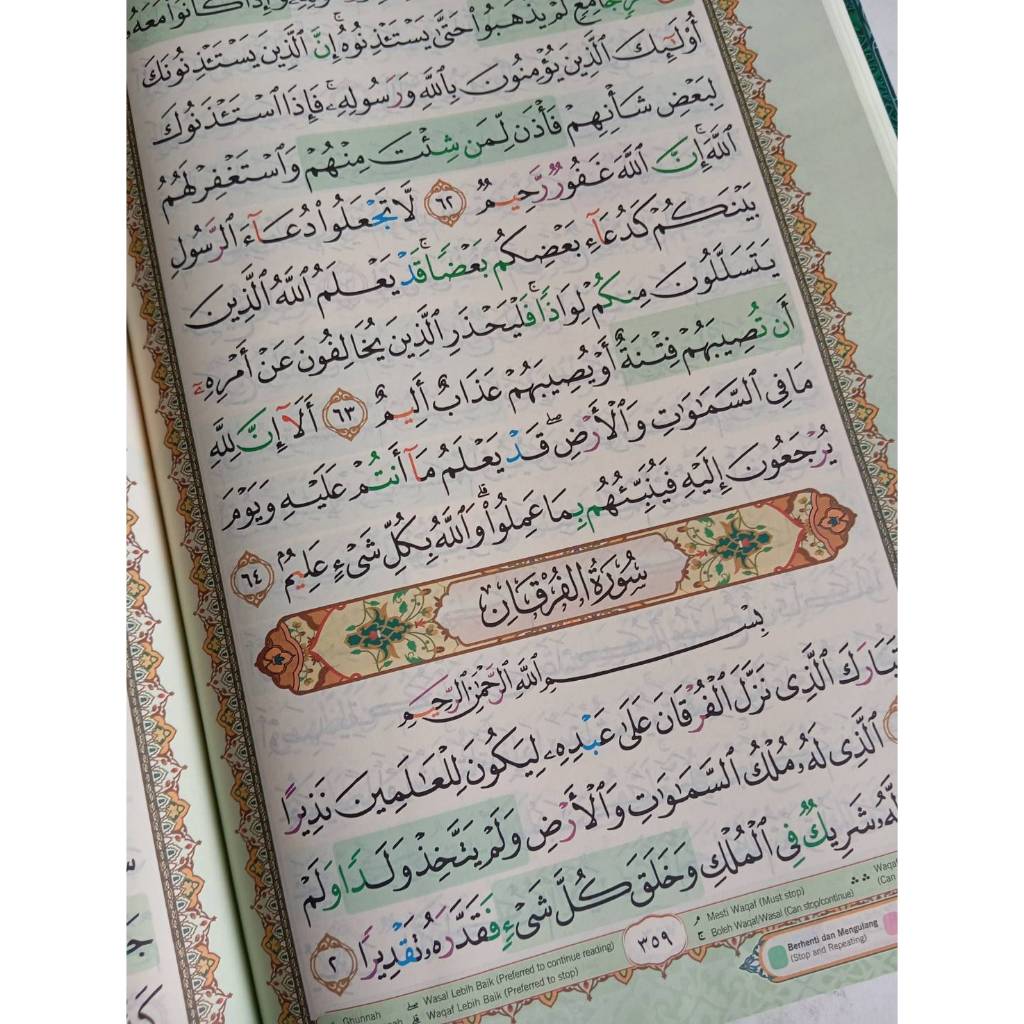 جَامِعٍ لَّمْ يَذْهَبُوا۟ حَتَّىٰ يَسْتَـْٔذِنُوهُ ۚ إِنَّ ٱلَّذِينَ يَسْتَـْٔذِنُونَكَ
أُو۟لَـٰٓئِكَ ٱلَّذِينَ يُؤْمِنُونَ بِٱللَّهِ وَرَسُولِهِۦ ۚ فَإِذَا ٱسْتَـْٔذَنُوكَ
لِبَعْضِ شَأْنِهِمْ فَأْذَن لِّمَن شِئْتَ مِنْهُمْ وَٱسْتَغْفِرْ لَهُمُ
ٱللَّهَ ۚ إِنَّ ٱللَّهَ غَفُورٌ رَّحِيمٌ ٦٢ لَّا تَجْعَلُوا۟ دُعَآءَ ٱلرَّسُولِ
بَيْنَكُمْ كَدُعَآءِ بَعْضِكُم بَعْضًا ۚ قَدْ يَعْلَمُ ٱللَّهُ ٱلَّذِينَ
يَتَسَلَّلُونَ مِنكُمْ لِوَاذًا ۚ فَلْيَحْذَرِ ٱلَّذِينَ يُخَالِفُونَ عَنْ أَمْرِهِۦٓ
أَن تُصِيبَهُمْ فِتْنَةٌ أَوْ يُصِيبَهُمْ عَذَابٌ أَلِيمٌ ٦٣ أَلَآ إِنَّ لِلَّهِ
مَا فِى ٱلسَّمَـٰوَٰتِ وَٱلْأَرْضِ ۖ قَدْ يَعْلَمُ مَآ أَنتُمْ عَلَيْهِ وَيَوْمَ
يُرْجَعُونَ إِلَيْهِ فَيُنَبِّئُهُم بِمَا عَمِلُوا۟ ۗ وَٱللَّهُ بِكُلِّ شَىْءٍ عَلِيمٌۢ ٦٤
سُورَةُ الْفُرْقَانِ
بِسْمِ ٱللَّهِ ٱلرَّحْمَـٰنِ ٱلرَّحِيمِ
تَبَارَكَ ٱلَّذِى نَزَّلَ ٱلْفُرْقَانَ عَلَىٰ عَبْدِهِۦ لِيَكُونَ لِلْعَـٰلَمِينَ نَذِيرًا
ٱلَّذِى لَهُۥ مُلْكُ ٱلسَّمَـٰوَٰتِ وَٱلْأَرْضِ وَلَمْ يَتَّخِذْ وَلَدًا وَلَمْ
لَّهُۥ شَرِيكٌ فِى ٱلْمُلْكِ وَخَلَقَ كُلَّ شَىْءٍ فَقَدَّرَهُۥ تَقْدِيرًا ٢
٣٥٩
Ghunnah
Wasal Lebih Baik (Preferred to continue reading)
Waqaf Lebih Baik (Preferred to stop)
Mesti Waqaf (Must stop)
Boleh Waqaf/Wasal (Can stop/continue)
Berhenti dan Mengulang
(Stop and Repeating)